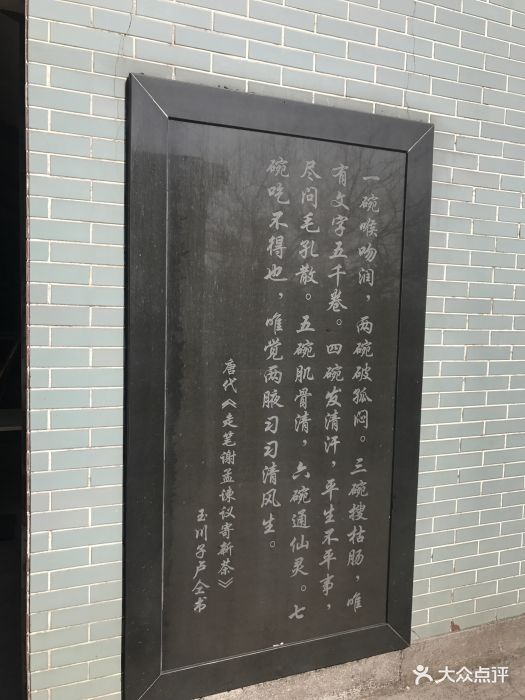 一碗喉吻润，两碗破孤闷。三碗搜枯肠，唯
有文字五千卷。四碗发清汗，平生不平事，
尽问毛孔散。五碗肌骨清，六碗通仙灵。七
碗吃不得也，唯觉两腋习习清风生。
唐代《走笔谢孟谏议寄新茶》
玉川子卢仝书
大众点评